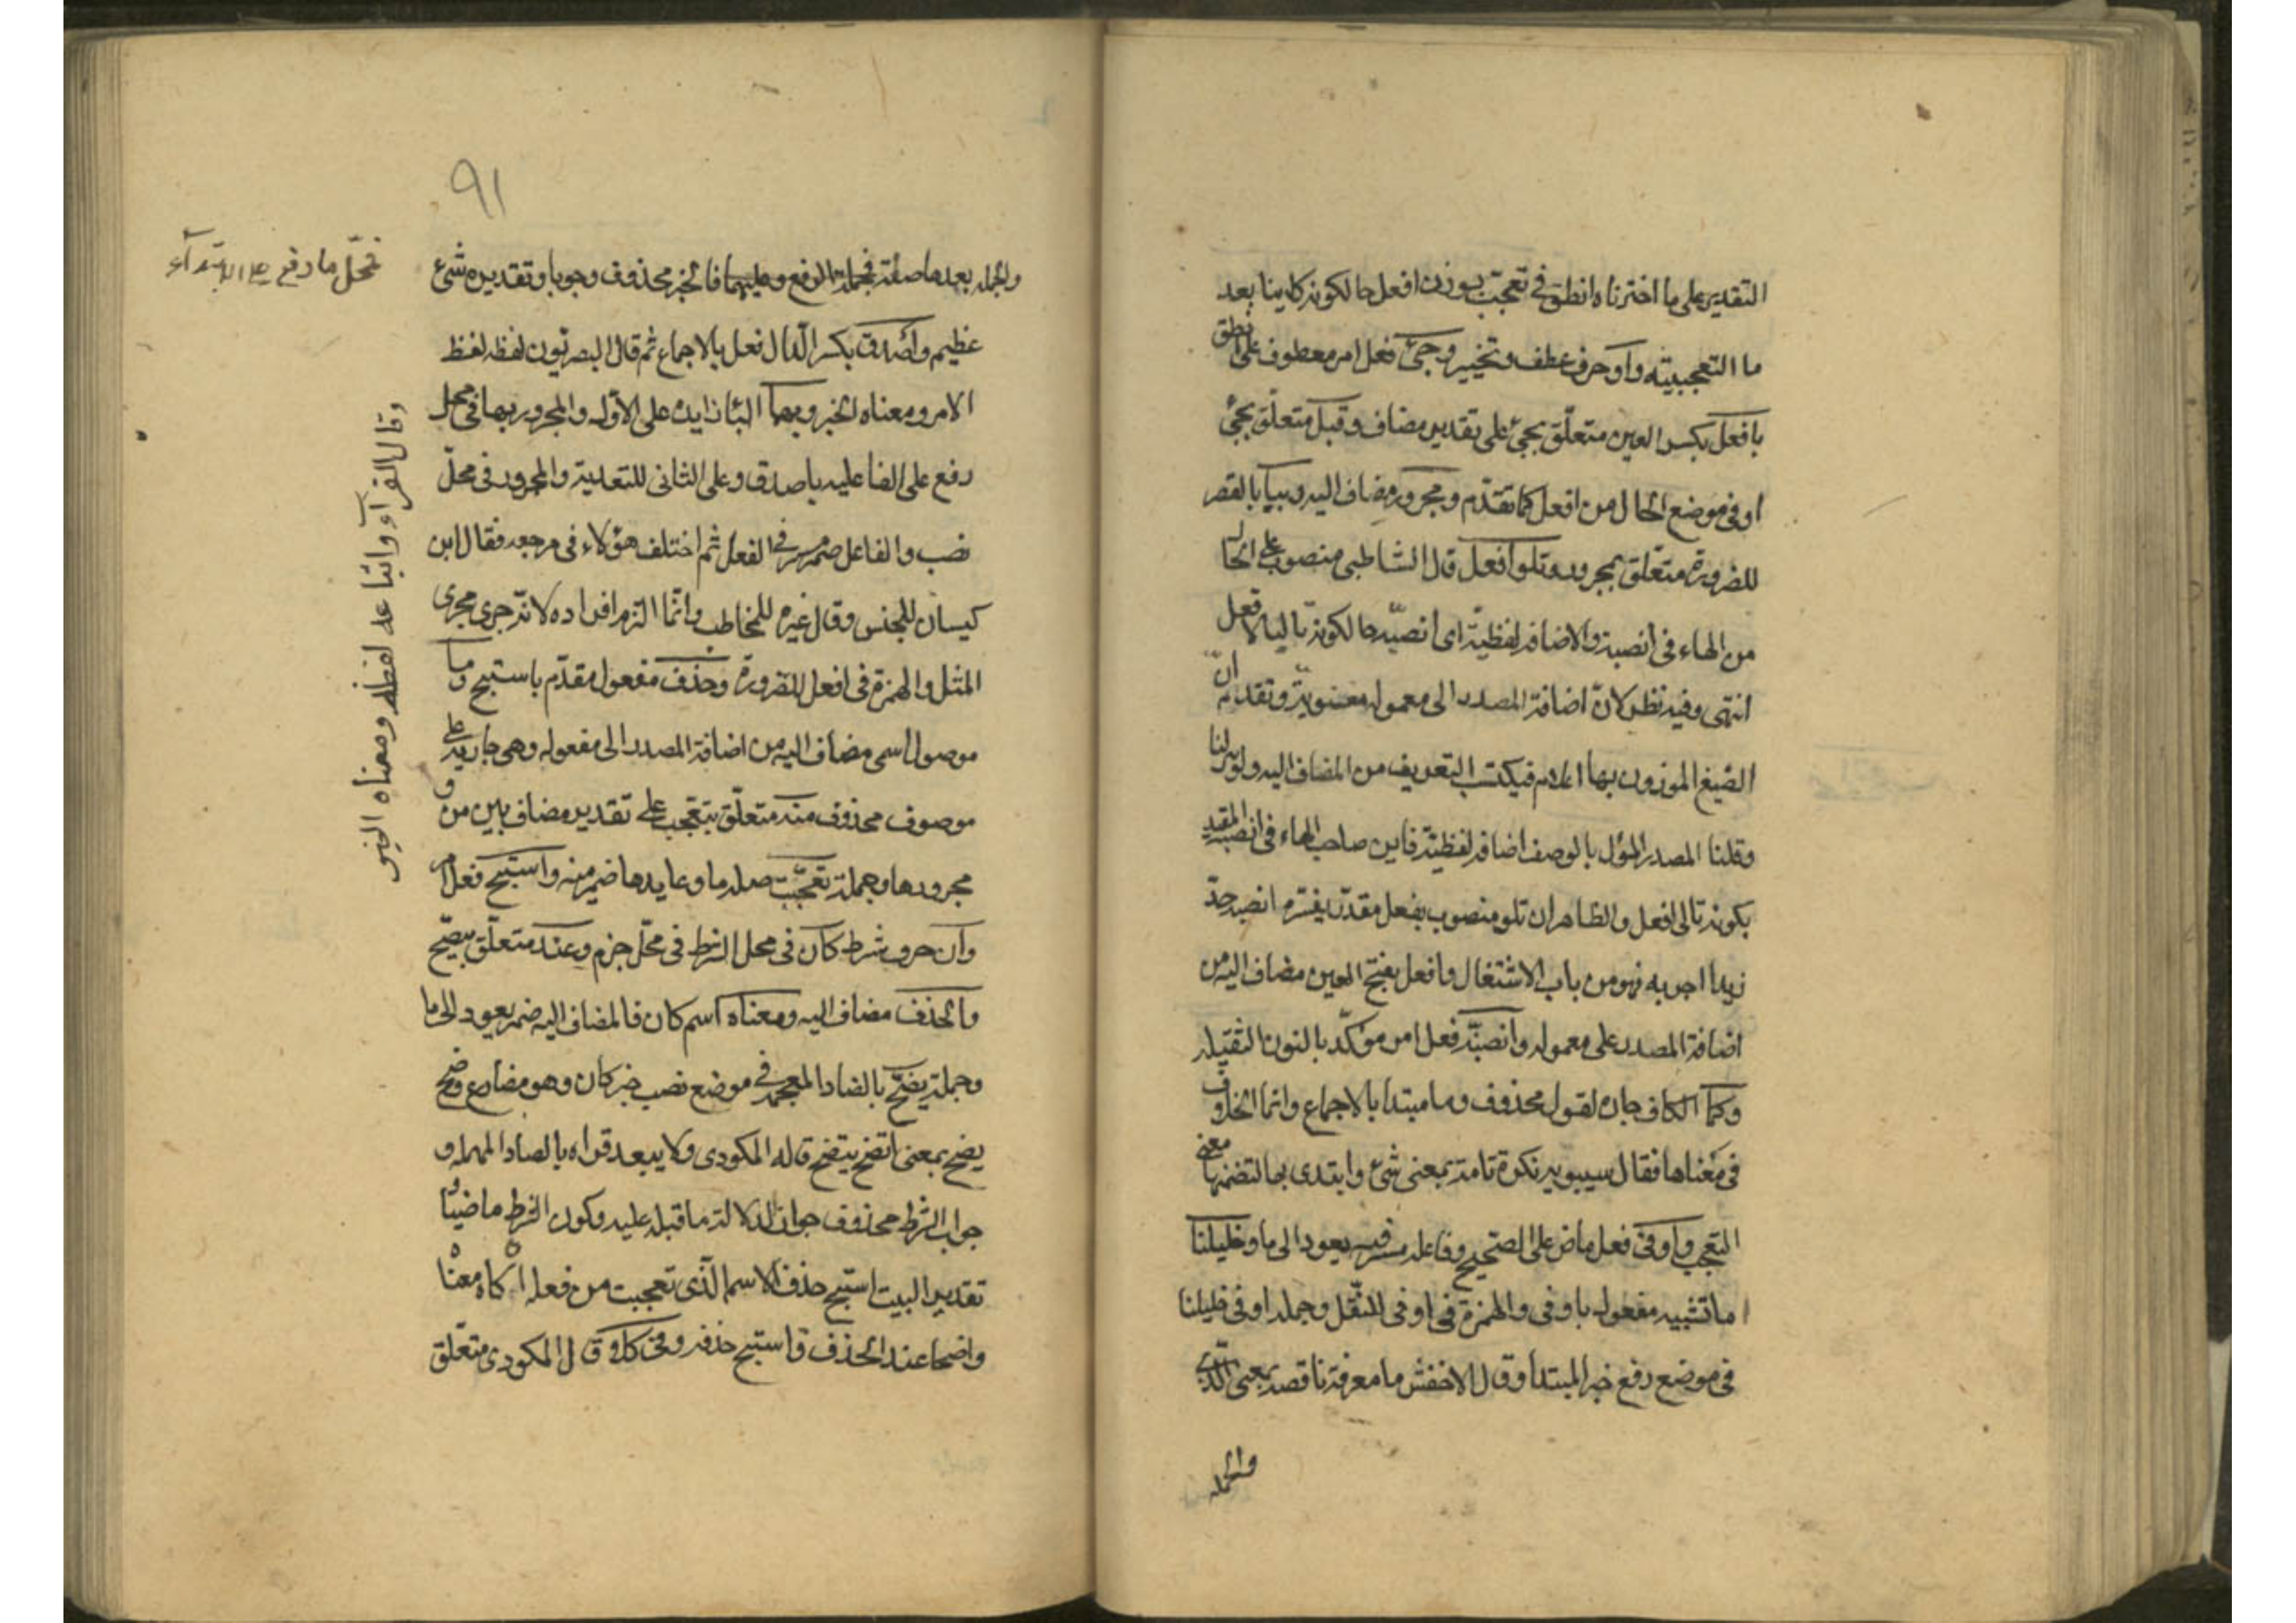 التقدير على ما اخترناه انطق في تعجب بوزن افعل حالكونه كاينا بعد
ما التعجبيته وأو حرف عطف وتخيير وجئ فعل امر معطوف على انطق
بافعل بكسر العين متعلق بجئ على تقدير مضاف وقبل متعلق بجئ
او في موضع الحال من افعل كما تقدم ومجرور مضاف اليه وببا بالقصر
للضرورة متعلق بمجرور وتلو أفعل قال الشاطبي منصوب على الحال
من الهاء في انصبنه والاضافة لفظية اى انصبنه حالكونه تاليا لافعل
انتهى وفيه نظر لان اضافة المصدر الى معموله معنوية وتقدم ان
الصيغ الموزون بها اعلام فيكتسب التعريف من المضاف اليه ولو سلنا
وقلنا المصدر المؤل بالوصف اضافة لفظية فاين صاحب الهاء في انصبنه المقيد
بكونه تالى افعل والظاهر ان تلو منصوب بفعل مقدر يفسره انصبنه حد
زيدا اضربه فهو من باب الاشتغال وافعل بفتح العين مضاف اليه من
اضافة المصدر على معموله وانصبنه فعل امر مؤكد بالنون الثقيله
وكما الكاف جاره لقول محذوف وما مبتدا بالاجماع وانما الخلاف
في معناها فقال سيبويه نكرة تامة بمعنى شئ وابتدى بها لتضمنها معنى
التعجب وأوفى فعل ماض على الصحيح وفاعله مستتر فيه يعود الى ما وخليلنا
ما تشبيه مفعوله باوفى والهمزة في اوفى للنقل وجملة اوفى خليلنا
في موضع رفع خبر المبتدا وقال الاخفش ما معرفة ناقصة بمعنى الذى
والجملة
٩١
والجملة بعدها صلة فجملتها الرفع وعليهما فالخبر محذوف وجوبا وتقديره شئ
فمحل ما رفع على الابتداء
عظيم وأصدق بكسر الدال فعل بالاجماع ثم قال البصريون لفظه لفظ
الامر ومعناه الخبر وبهما البا زايدة على الاول والمجرور بها في محل
رفع على الفاعليه باصدق وعلى الثانى للتعدية والمجرور في محل
نصب والفاعل ضمير مستتر في الفعل ثم اختلف هؤلاء في مرجعه فقال ابن
كيسان للجنس وقال غيره للمخاطب وانما التزم افراده لانه جرى مجرى
المثل والهمزة في افعل للضرورة وحذف مفعول مقدم باستبح وما
موصول اسمى مضاف اليه من اضافة المصدر الى مفعوله وهى جارية على
موصوف محذوف منه متعلق بتعجب على تقدير مضاف بين من و
مجرورها وجملة تعجبت صله ما وعايدها ضمير منه واستبح فعل امر
وان حرف شرط كان في محل الشرط في محل جزم وعند متعلق بيضح
والحذف مضاف اليه ومعناه اسم كان فالمضاف اليه ضمير يعود الى ما
وجملة يضح بالضاد المعجمة في موضع نصب خبر كان وهو مضارع وضح
يضح بمعنى اتضح يتضح قاله المكودى ولا يبعد قراه بالصاد المهمله و
جواب الشرط محذوف جوازا لدلالة ما قبله عليه وكون الشرط ماضيا و
تقدير البيت استبح حذف الاسم الذى تعجبت من فعله ان كان معناه
واضحا عند الحذف فاستبح حذفه وفى كلا قال المكودى متعلق
وقال الفراء وانبا على لفظه ومعناه الخبر